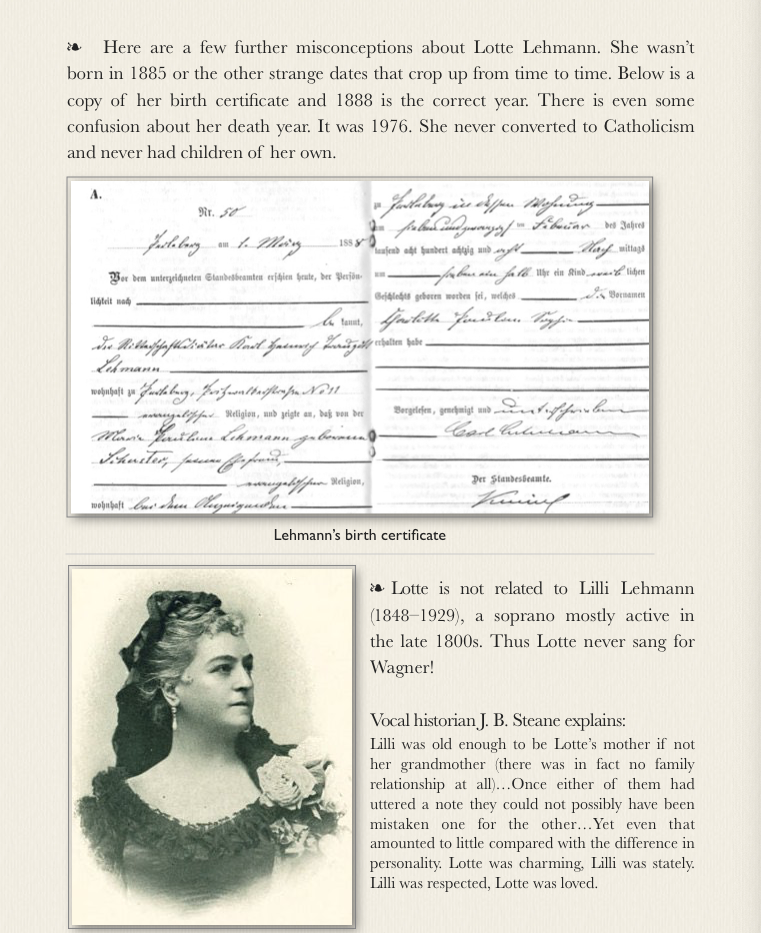 ❧ Here are a few further misconceptions about Lotte Lehmann. She wasn't
born in 1885 or the other strange dates that crop up from time to time. Below is a
copy of her birth certificate and 1888 is the correct year. There is even some
confusion about her death year. It was 1976. She never converted to Catholicism
and never had children of her own.
A.
Nr. 50
Perleberg am 1. März 1888
Vor dem unterzeichneten Standesbeamten erschien heute, der Persön-
lichkeit nach
kannt,
Lehmann
wohnhaft zu Perleberg,
evangelischer Religion, und zeigte an, daß von der
Marie Pauline Lehmann geborenen
Schuster, seiner Ehefrau,
evangelischer Religion,
wohnhaft bei dem
zu Perleberg in dessen Wohnung
am sieben und zwanzigsten Februar des Jahres
tausend acht hundert achtzig und acht Nach mittags
um sieben ein halb Uhr ein Kind weib lichen
Geschlechts geboren worden sei, welches die Vornamen
Charlotte Pauline Sophie
erhalten habe
Vorgelesen, genehmigt und unterschrieben
Carl Lehmann
Der Standesbeamte.
Lehmann's birth certificate
❧ Lotte is not related to Lilli Lehmann
(1848–1929), a soprano mostly active in
the late 1800s. Thus Lotte never sang for
Wagner!
Vocal historian J. B. Steane explains:
Lilli was old enough to be Lotte's mother if not
her grandmother (there was in fact no family
relationship at all)…Once either of them had
uttered a note they could not possibly have been
mistaken one for the other…Yet even that
amounted to little compared with the difference in
personality. Lotte was charming, Lilli was stately.
Lilli was respected, Lotte was loved.